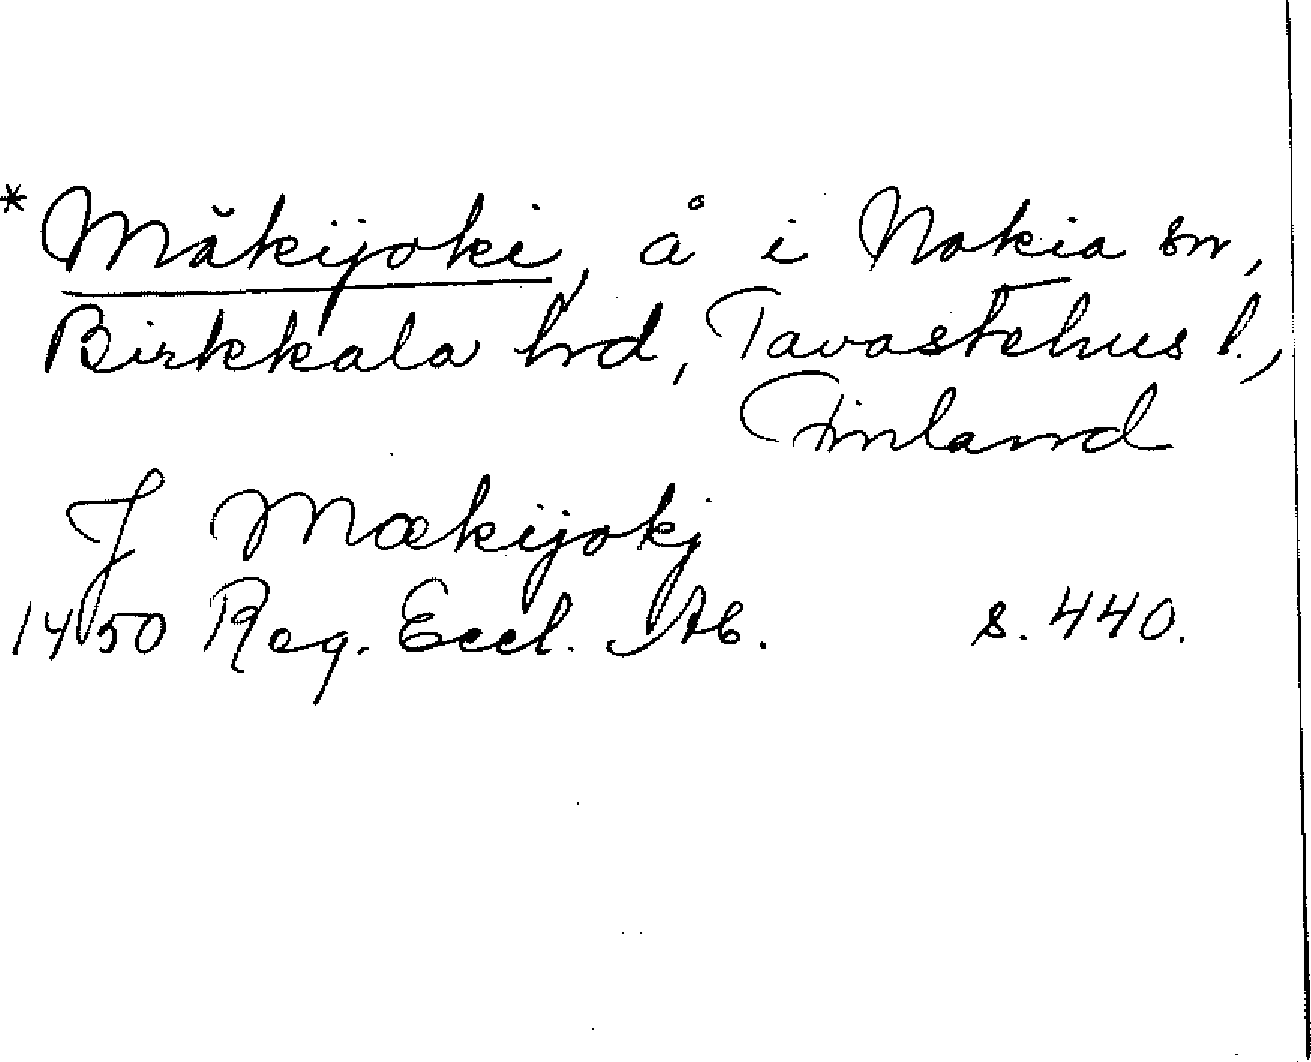 * Mäkijoki, å i Nokia sn,
Birkkala hrd, Tavastehus l.,
Finland
J Mækijokj
1450 Reg. Eccl. Ab. s. 440.